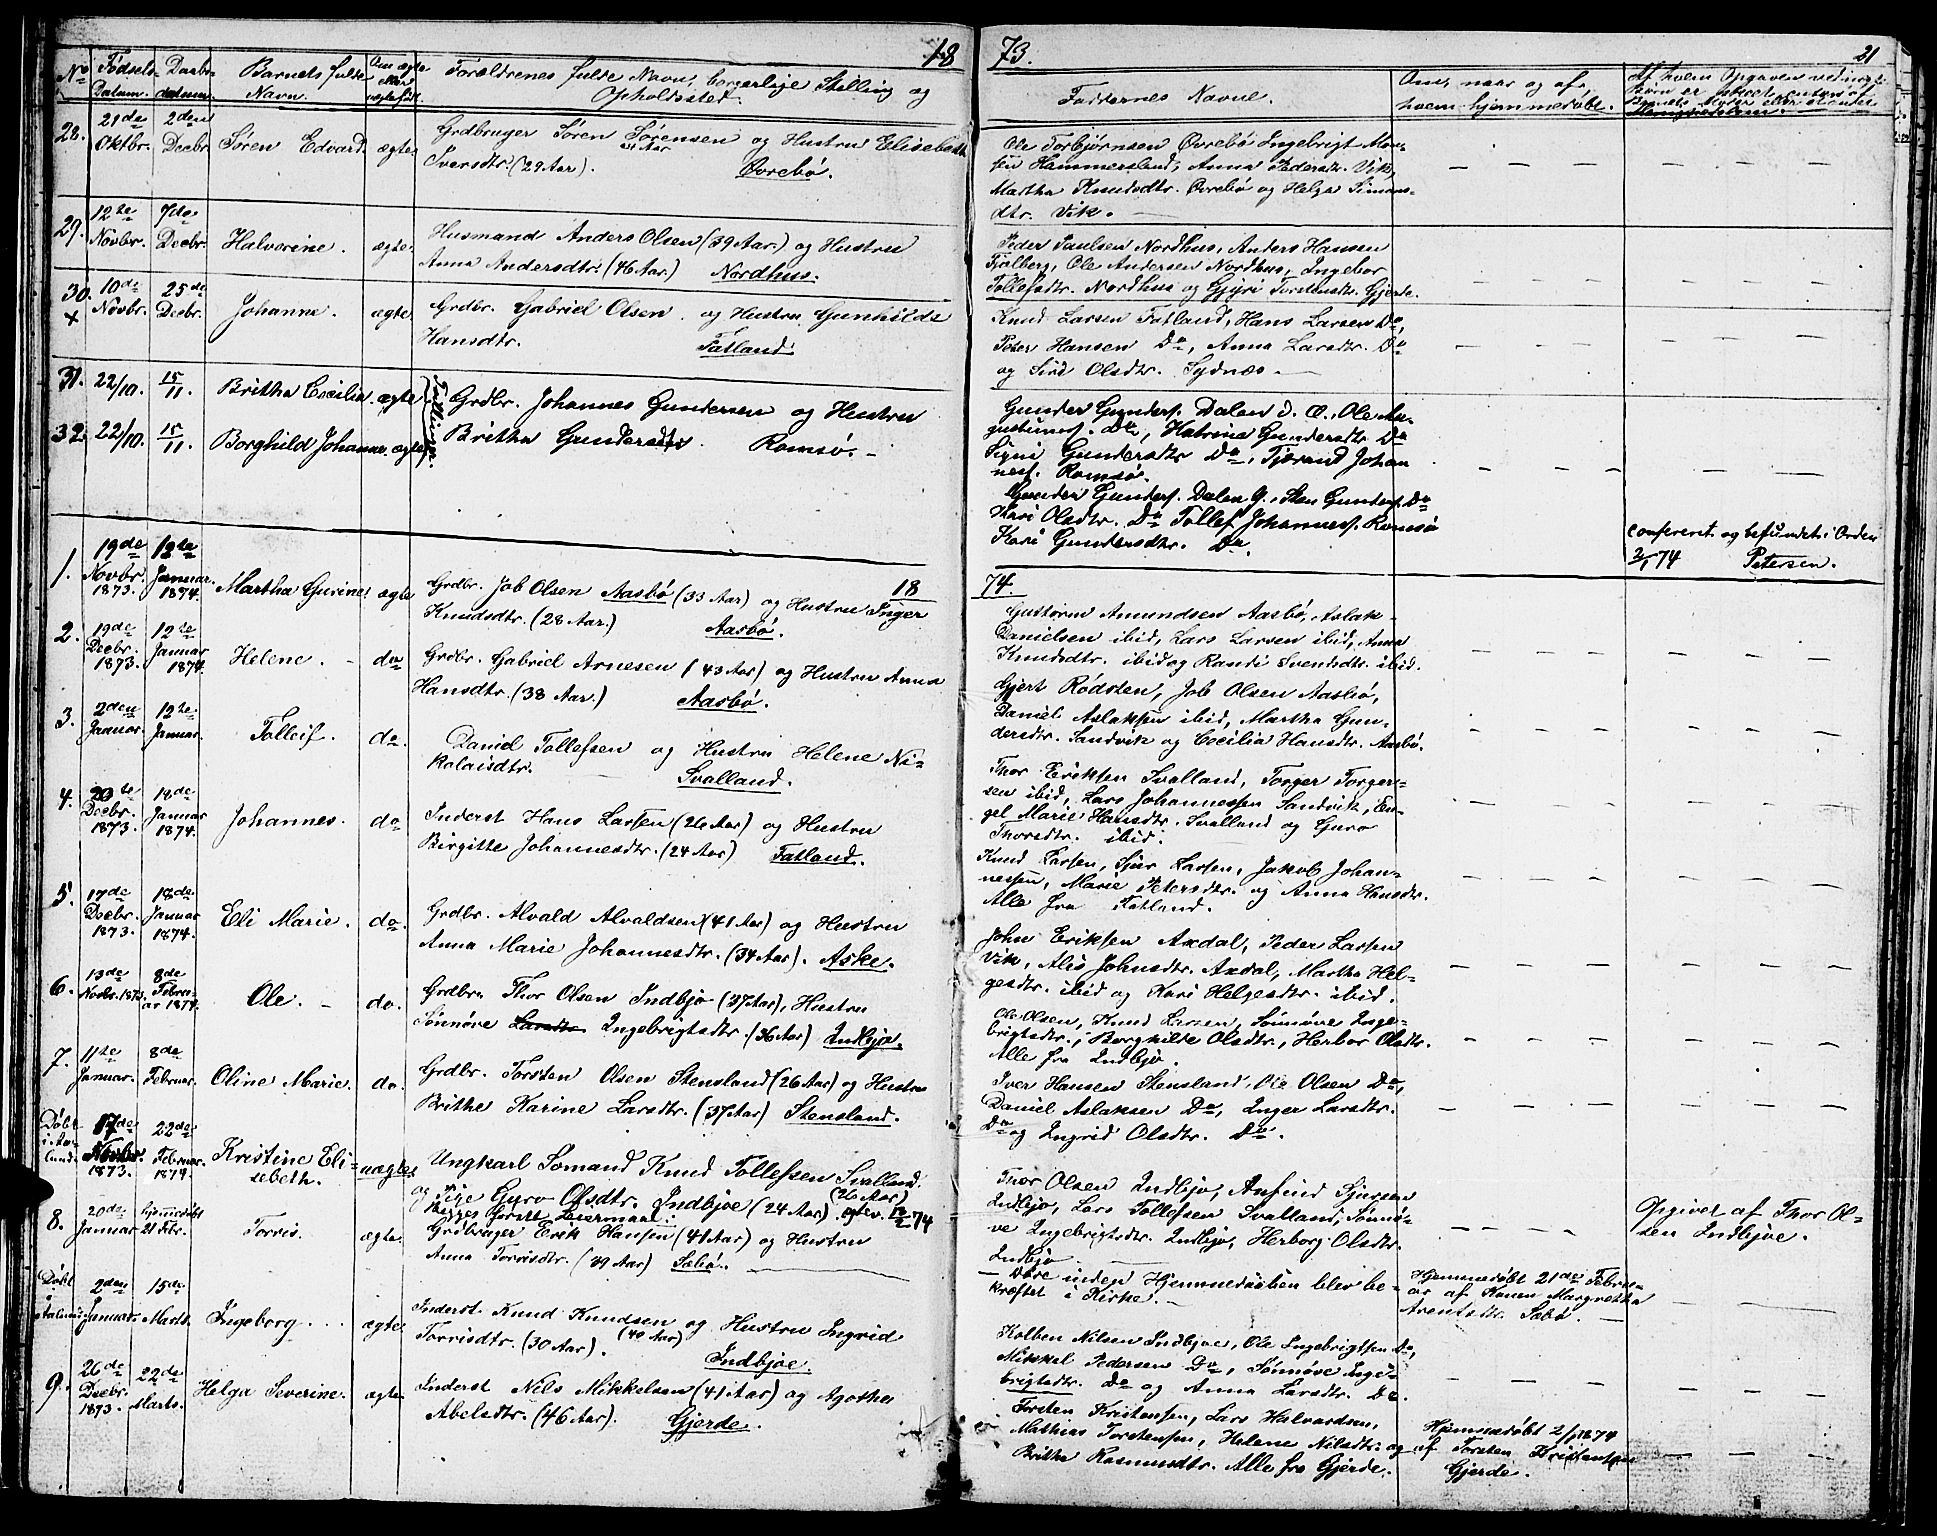 18 73. 21
No Fødsels- Datum. Daabs- datum. Barnets fulde Navn. Om ægte eller uægte født. Forældrenes fulde Navn, borgerlige Stilling og Opholdssted. Faddernes Navne. Om, naar og af hvem hjemmedøbt.
28. 21de Oktbr. 2den Decbr. Søren Edvard. ægte
Grdbruger Søren Sørensen og Hustru Elisebeth
31 Aar
Iversdtr. (29 Aar). Øvrebø.
Ole Torbjørnsen Øvrebø Ingebrigt Mon-
sen Hammersland, Anna Pedersdtr. Vik,
Martha Knudsdtr. Øvrebø og Helga Simons-
dtr. Vik.
29. 12te Novbr. 7de Decbr. Halvorine. ægte.
Husmand Anders Olsen (39 Aar.) og Hustru
Anna Andersdtr. (46 Aar.) Nordhus.
Peder Paulsen Nordhus, Anders Hansen
Fjelberg, Ole Andersen Nordhus, Ingebor
Tollefsdtr. Nordhus og Gjyri Torstensdtr. Gjerde.
30. x 10de Novbr. 25de Decbr. Johanne. ægte
Grdbr. Gabriel Olsen og Hustru Gunhilde
Hansdtr. Fatland.
Knud Larsen Fatland, Hans Larsen Do,
Peter Hansen Do, Anna Larsdtr. Do
og Siri Olsdtr. Sydnæs.
31. 22/10. 15/11. Britha Cecilia. ægte
32. 22/10. 15/11. Borghild Johanne. ægte
Tvillinger.
Grdbr. Johannes Gundersen og Hustru
Britha Gundersdtr. Romsø.
Gunder Gunders. Dalen d. Æ., Ole Au-
gustinus. Do, Katrina Gundersdtr. Do
Signi Gundersdtr Do, Tjærand Johan
nes. Romsø.
Gunder Gunders. Dalen Y., Sten Gunders. Do
Kari Olsdtr. Do Tollef Johannes. Romsø
Kari Gundersdtr. Do.
Confereret og befundet i Orden
2/1 74 Petersen.
18 74.
1. 19de Novbr. 1873. 12te Januar. 1874. Martha Gurine. ægte
Grdbr. Job Olsen Aasbø (33 Aar) og Hustru Inger
Knudsdtr. (28 Aar.) Aasbø.
Guttorm Amundsen Aasbø, Aslak
Danielsen ibid, Lars Larsen ibid, Anna
Knudsdtr. ibid og Randi Svendsdtr. ibid.
2. 19de Decbr. 1873. 12te Januar 1874. Helene. do
Grdbr. Gabriel Arnesen (43 Aar) og Hustru Anna
Hansdtr. (38 Aar.) Aasbø.
Gjert Rødsten, Job Olsen Aasbø,
Daniel Aslaksen ibid, Martha Gun-
dersdtr. Sandvik og Cecilia Hansdtr. Aasbø.
3. 2den Januar. 12te Januar. Tolleif. do.
Daniel Tollefsen og Hustru Helene Ni-
kolaisdtr. Svalland.
Thor Eriksen Svalland, Torger Torger-
sen ibid, Lars Johannessen Sandvik, En-
gel Marie Hansdtr. Svalland og Guro
Thorsdtr. ibid.
4. 20de Decbr. 1873. 18de Januar 1874. Johannes. do
Inderst Hans Larsen (26 Aar) og Hustru
Birgitte Johannesdtr. (24 Aar) Fatland.
Knud Larsen, Sjur Larsen, Jakob Johan-
nessen, Marie Petersdtr. og Anna Hansdtr.
Alle fra Fatland.
5. 17de Decbr. 1873. 18de Januar 1874. Eli Marie. do.
Grdbr. Alvald Alvaldsen (41 Aar) og Hustru
Anna Marie Johannesdtr. (34 Aar). Aske.
John Eriksen Axdal, Peder Larsen
Vik, Alis Johnsdtr. Axdal, Martha Hel-
gesdtr. ibid og Kari Helgesdtr. ibid.
6. 13de Novbr. 1873. 8de Februar 1874. Ole. do.
Grdbr. Thor Olsen Indbjo (37 Aar), Hustru
Sønnøve Larsdtr Ingebrigtsdtr. (36 Aar) Indbjo.
Ole Olsen, Knud Larsen, Sønnøve Inge-
brigtsdtr., Borghilde Olsdtr., Herbor Olsdtr.
Alle fra Indbjo.
7. 11te Januar. 8de Februar. Oline Marie. do.
Grdbr. Torsten Olsen Stensland (26 Aar) og Hustru
Brithe Karine Larsdtr. (37 Aar) Stensland.
Iver Hansen Stensland, Ole Olsen Do,
Daniel Aslaksen Do, Inger Larsdtr.
Do og Ingrid Olsdtr. Do.
Døbt 17de Novbr. 1873. 22de Februar. 1874. Kristine Eli-
sebeth. uægte
Ungkarl Sømand Knud Tollefsen Svalland.
(26 Aar)
og Pige Guro Olsdtr. Indbjoe (24 Aar).
Begges første Leiermaal.
Thor Olsen Indbjo, Anfind Sjursen
Indbjo, Lars Tollefsen Svalland, Sønnø-
ve Ingebrigtsdtr. Indbjo, Herborg Olsdtr.
Indbjo
Opgivet af Thor Ol-
sen Indbjoe.
8. 20de Januar Hjemmedøbt 21 Febr. Torris. ægte.
Grdbruger Erik Hansen (41 Aar) og Hustru
Anna Torrisdtr. (39 Aar) Sæbø.
Døde inden Hjemmedaaben blev be-
kræftet i Kirke.
Hjemmedøbt 21de Febru-
ar af Konen Margretha
Arentsdtr. Sæbø.
Døbt 2den Januar. 15de Marts. Ingeborg. ægte.
Inderst Knud Knudsen og Hustru Ingrid
(40 Aar)
Torrisdtr. (30 Aar). Indbjoe.
Kolben Nilsen Indbjoe, Ole Ingebrigtsen Do,
Mikkel Pedersen Do, Sønnøve Inge-
brigtsdtr. Do og Anna Larsdtr. Do.
9. 26de Decbr. 1873. 22de Marts. Helga Severine. ægte.
Inderst Nils Mikkelsen (41 Aar) og Agotha
Abelsdtr. (46 Aar). Gjerde.
Torsten Kristensen, Lars Halvordsen,
Mathias Torstensen, Helene Nilsdtr. og
Britha Rasmusdtr. Alle fra Gjerde.
Hjemmedøbt 2/1 1874
af Torsten Kristensen
Gjerde.